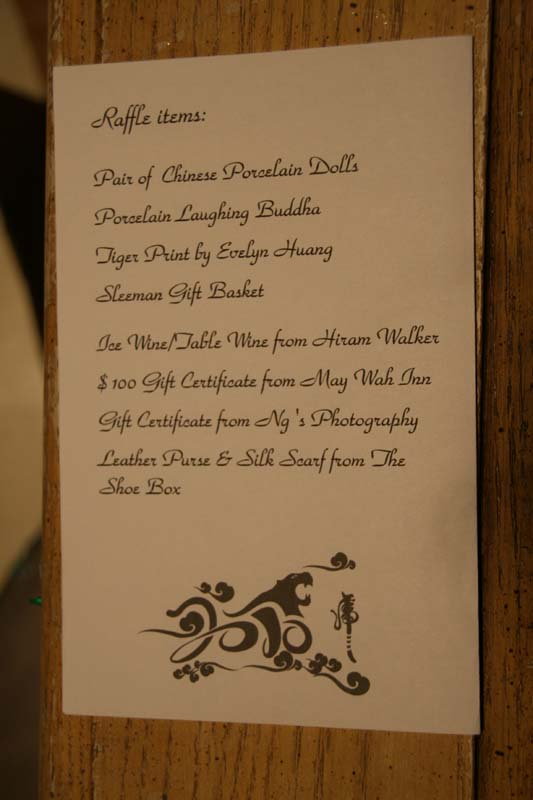 Raffle items:
Pair of Chinese Porcelain Dolls
Porcelain Laughing Buddha
Tiger Print by Evelyn Huang
Sleeman Gift Basket
Ice Wine/Table Wine from Hiram Walker
$100 Gift Certificate from May Wah Inn
Gift Certificate from Ng's Photography
Leather Purse & Silk Scarf from The
Shoe Box
2010